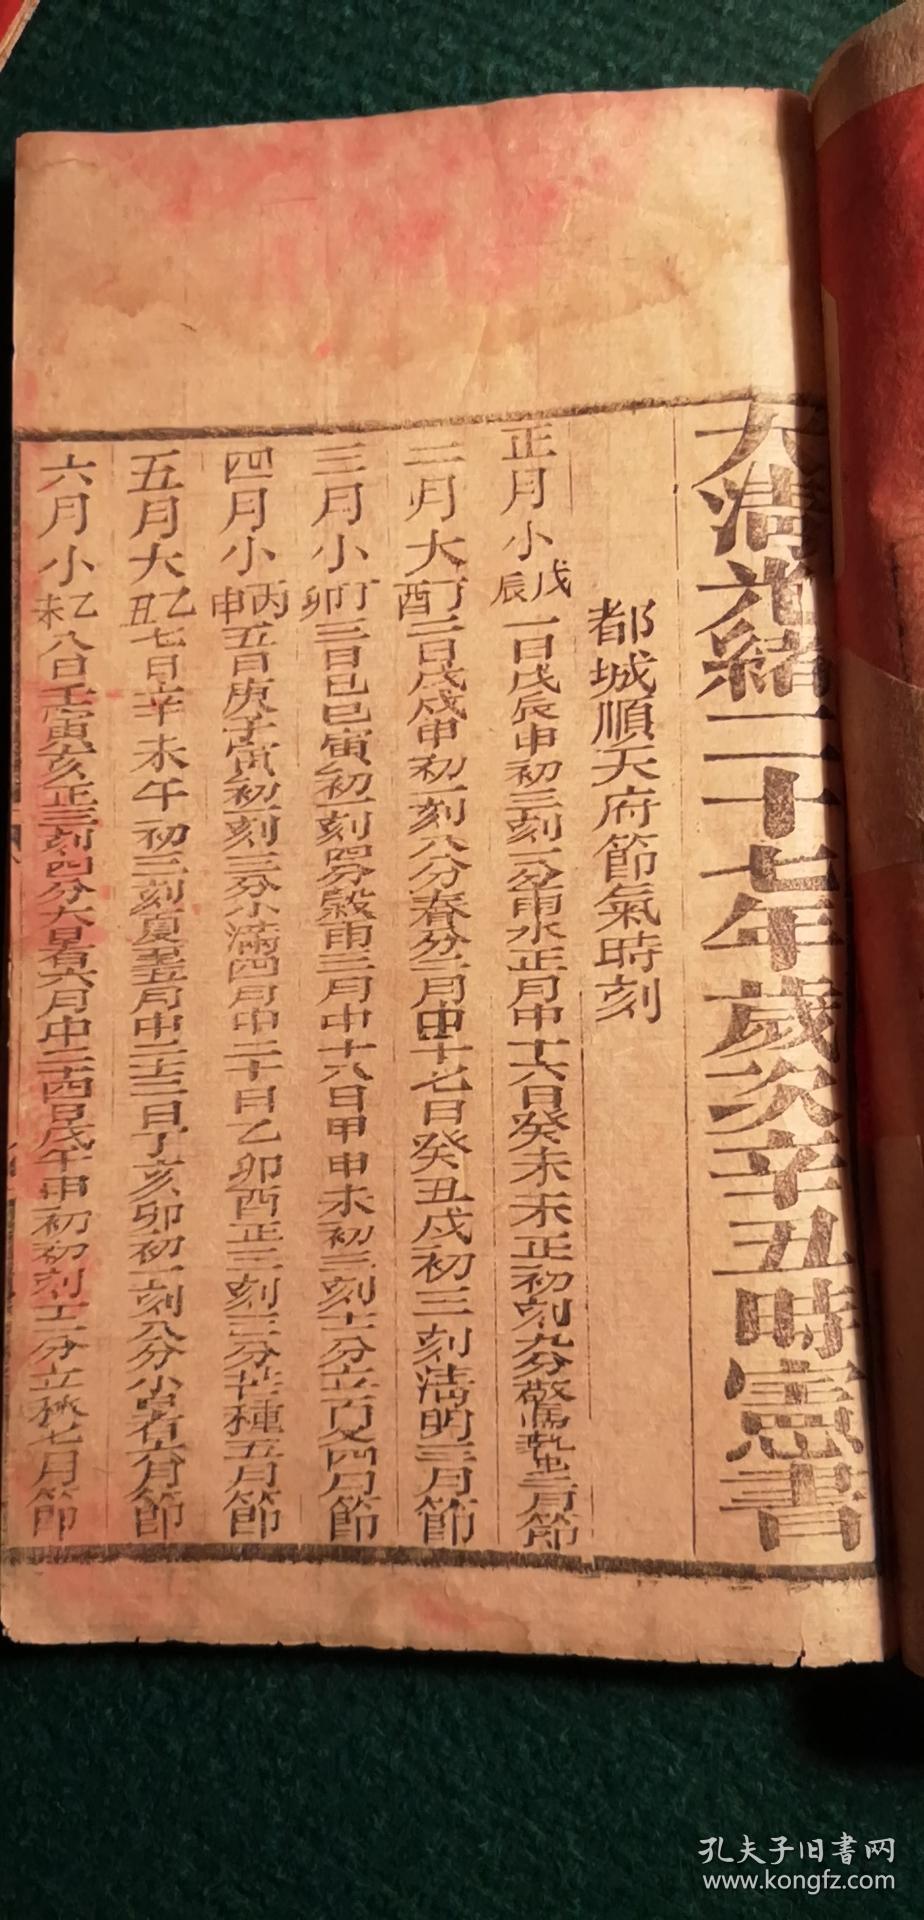 大清光緒二十七年歲次辛丑時憲書
都城順天府節氣時刻
正月小戊辰一日戊辰申初三刻一分雨水正月中十六日癸未未正初刻九分驚蟄二月節
二月大丁酉二日戊戌申初一刻八分春分二月中十七日癸丑戌初三刻清明三月節
三月小丁卯三日己巳寅初一刻四分穀雨三月中十八日甲申未初三刻十一分立夏四月節
四月小丙申五日庚子寅初一刻三分小滿四月中二十日乙卯酉正三刻分芒種五月節
五月大乙丑七日辛未午初三刻夏至五月中二十三日丁亥卯初一刻八分小暑六月節
六月小乙未八日壬寅亥正三刻四分大暑六月中二十四日戊午申初初刻十二分立秋七月節
孔夫子旧書网
www.kongfz.com